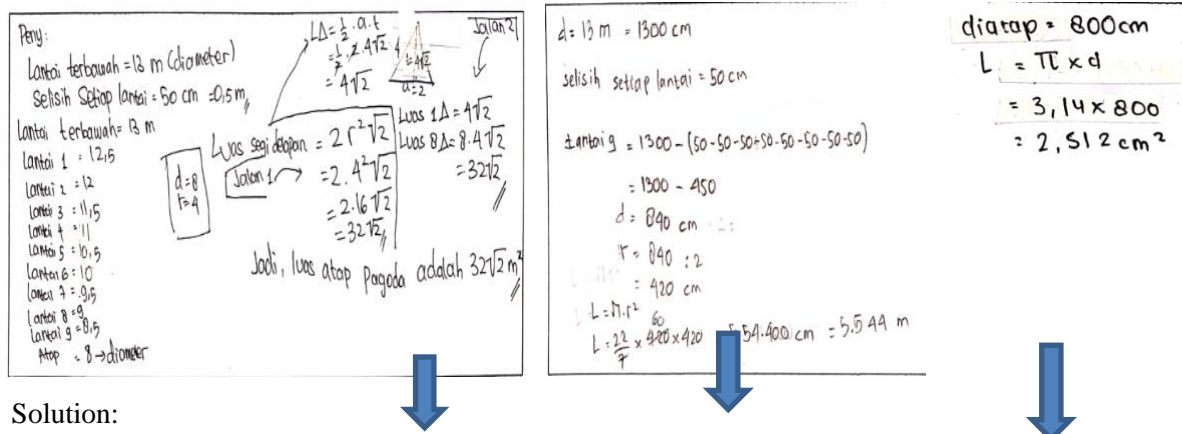 Peny:
Lantai terbawah = 13 m (diameter)
Selisih Setiap lantai = 50 cm = 0,5 m
Lantai terbawah = 13 m
Lantai 1 = 12,5
Lantai 2 = 12
Lantai 3 = 11,5
Lantai 4 = 11
Lantai 5 = 10,5
Lantai 6 = 10
Lantai 7 = 9,5
Lantai 8 = 9
Lantai 9 = 8,5
Atap = 8 → diameter
d = 8
r = 4
LΔ = 1/2 . a . t
= 1/2 . 2 . 4√2
= 4√2
4
= 4√2
a = 2
Jalan 2
Luas 1Δ = 4√2
Luas 8Δ = 8 . 4√2
= 32√2
Luas segi delapan = 2 r² √2
Jalan 1 → = 2 . 4² √2
= 2 . 16 √2
= 32√2
Jadi, luas atap pagoda adalah 32√2 m²
d = 13 m = 1300 cm
selisih setiap lantai = 50 cm
Lantai 9 = 1300 - (50-50-50+50-50-50-50-50)
= 1300 - 450
d = 840 cm
r = 840 : 2
= 420 cm
L = π . r²
60
L = 22/7 × 420 × 420 54.400 cm = 5.544 m
diatap = 800 cm
L = π x d
= 3,14 x 800
= 2,512 cm²
Solution: